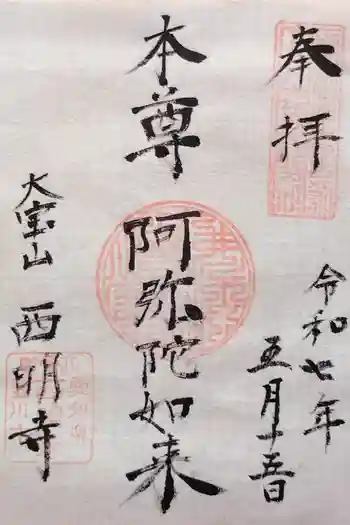 奉拝
令和七年
五月十五日
本尊 阿弥陀如来
大宝山 西明寺